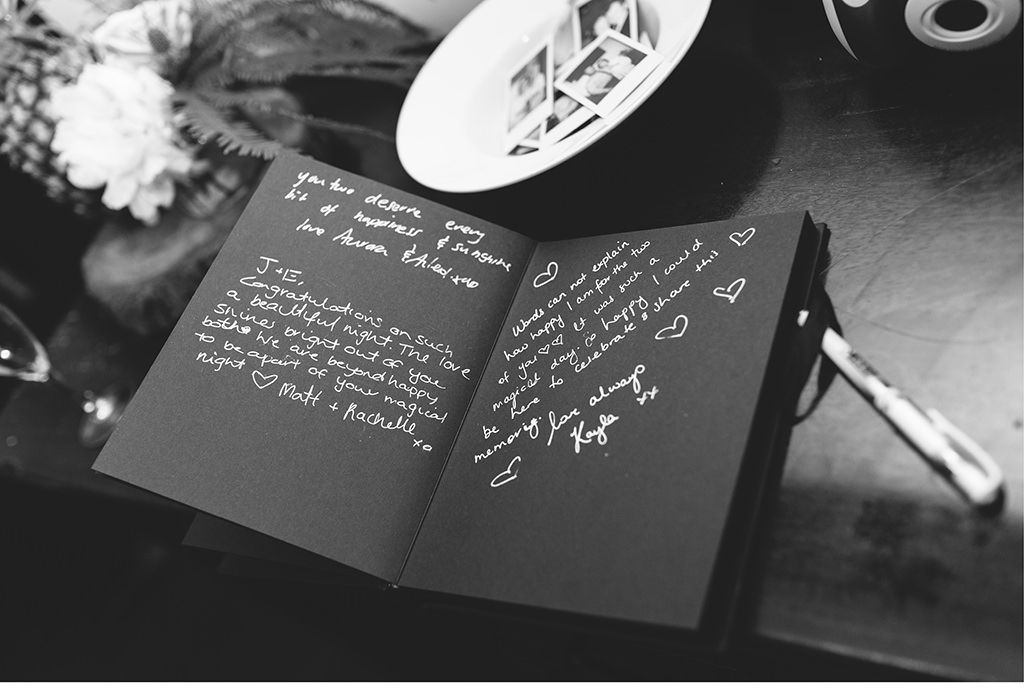 you two deserve every
bit of happiness & sunshine
love Aurora & xoxo
J + E,
Congratulations on such
a beautiful night. The love
shines bright out of you
both. We are beyond happy
to be apart of your magical
night ♡ Matt + Rachelle
xo
Words can not explain
how happy I am for the two
of you ♡♡ it was such a
magical day. so happy I could
be here to celebrate & share this
memory. love always
Kayla xx